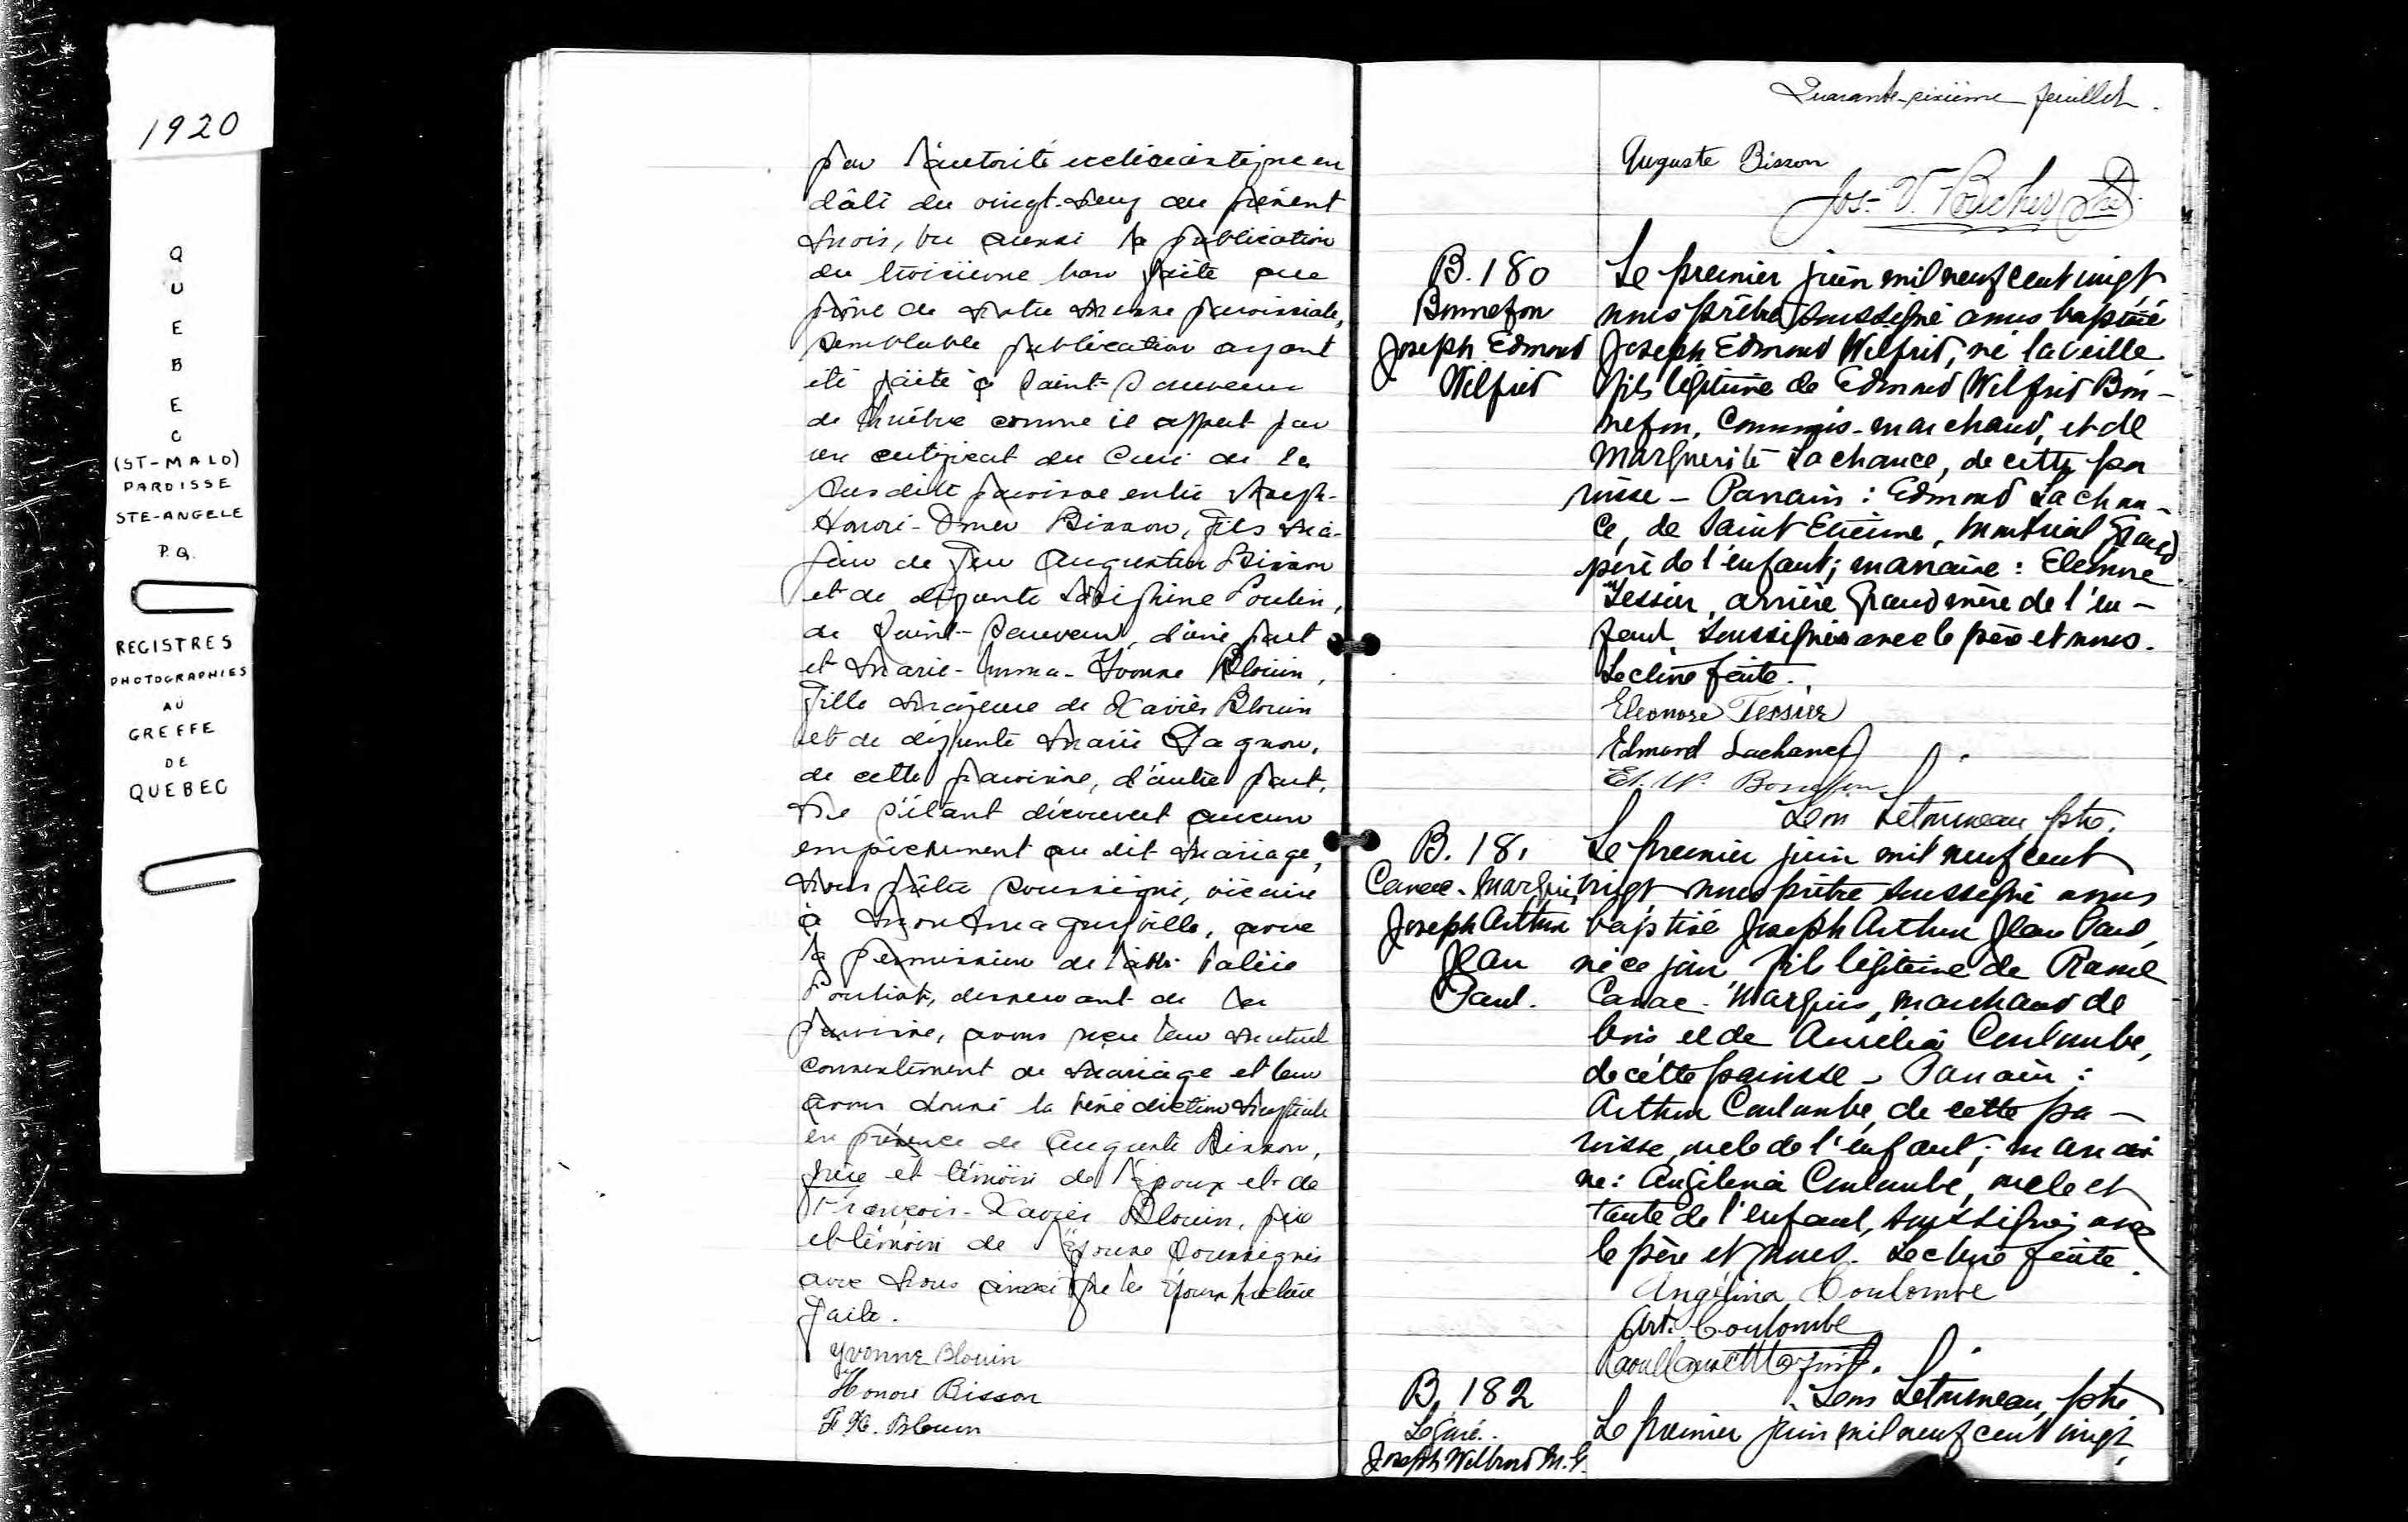 1920
QUEBEC
(ST-MALO)
PAROISSE
STE-ANGELE
P.Q.
REGISTRES
PHOTOGRAPHIES
AU
GREFFE
DE
QUEBEC
par l'autorité ecclésiastique en
date du vingt-neuf du présent
mois, vu aussi la publication
du troisième ban faite au
prône de notre messe paroissiale,
semblable publication ayant
été faite à Saint-Sauveur
de Québec comme il appert par
un certificat du Curé de la
susdite paroisse entre Joseph-
Honoré-Omer Bisson, fils ma-
jeur de feu Augustin Bisson
et de défunte Delphine Poulin,
de Saint-Sauveur, d'une part
et Marie-Emma-Yvonne Blouin,
fille majeure de Xavier Blouin
et de défunte Marie Gagnon,
de cette paroisse, d'autre part,
ne s'étant découvert aucun
empêchement au dit mariage,
nous prêtre soussigné, vicaire
à Montmagny, avec
la permission de l'abbé Valère
Pouliot, desservant de la
paroisse, avons reçu leur mutuel
consentement de mariage et leur
avons donné la bénédiction nuptiale
en présence de Auguste Bisson,
frère et témoin de l'époux et de
François-Xavier Blouin, père
et témoin de l'épouse soussignés
avec nous ainsi que les époux lecture
faite.
Yvonne Blouin
Honoré Bisson
F X. Blouin
Quarante-sixième feuillet.
Auguste Bisson
Jos-V. Boucher Ptre
B. 180
Bonnefon
Joseph Edmond
Wilfrid
Le premier juin mil neuf cent vingt
nous prêtre soussigné avons baptisé
Joseph Edmond Wilfrid, né la veille
fils légitime de Edmond Wilfrid Bon-
nefon, Commis-marchand, et de
Marguerite Lachance, de cette pa
roisse - Parrain : Edmond Lachan-
ce, de Saint Etienne, Montréal Grand
père de l'enfant; marraine : Eléonore
Tessier, arrière grand mère de l'en-
fant, soussignés avec le père et nous.
Lecture faite.
Eleonore Tessier
Edmond Lachance
Ed. W. Bonnefon
Léon Letourneau ptre.
B. 181
Canac-Marquis,
Joseph Arthur
Jean
Paul.
Le premier juin mil neuf cent
vingt nous prêtre soussigné avons
baptisé Joseph Arthur Jean Paul,
né ce jour, fils légitime de Raoul
Canac-Marquis, marchand de
bois et de Aurélia Coulombe,
de cette paroisse - Parrain :
Arthur Coulombe, de cette pa-
roisse, oncle de l'enfant; marrai
ne: Angélina Coulombe, oncle et
tante de l'enfant, soussignés avec
le père et nous. Lecture faite.
Angélina Coulombe
Art. Coulombe
Raoul Canac Marquis.
Léon Letourneau, ptre
B. 182
Légaré.
Joseph Wilbrod M.G.
Le premier juin mil neuf cent vingt,